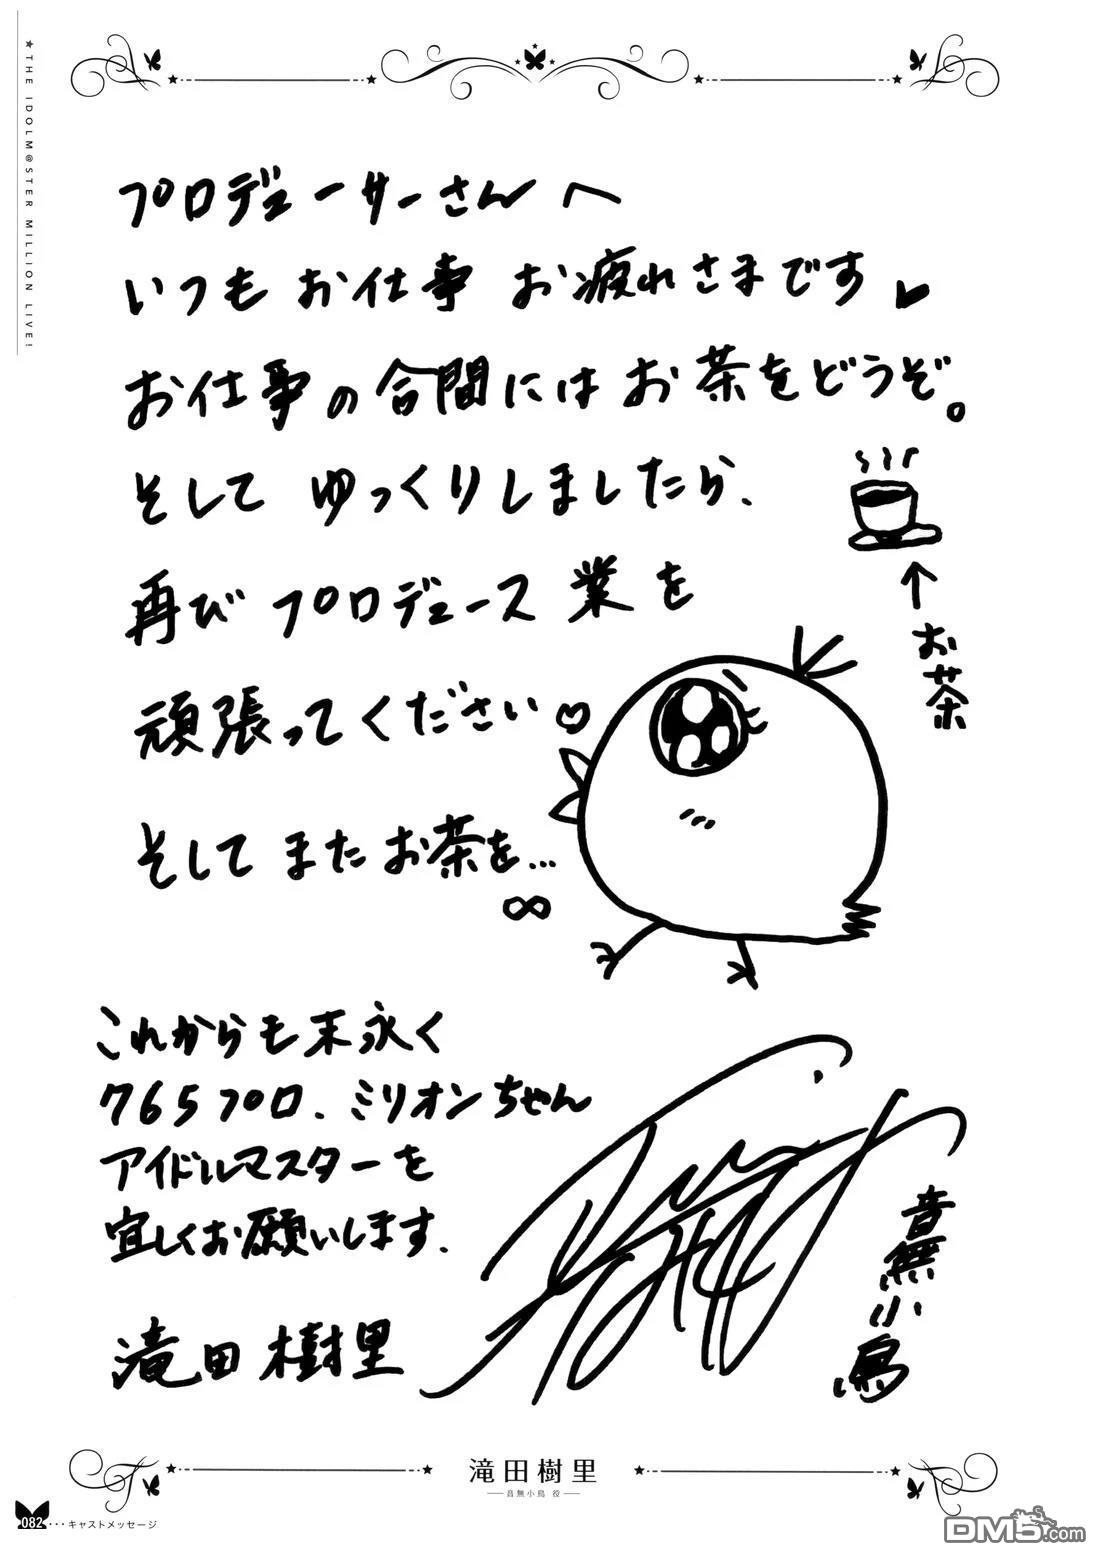 ★THE IDOLM@STER MILLION LIVE!
プロデューサーさんへ
いつもお仕事 お疲れさまです♥
お仕事の合間にはお茶をどうぞ。
そして ゆっくりしましたら、
再びプロデュース業を
頑張ってください♡
そしてまたお茶を…
∞
↑
お茶
これからも末永く
765プロ、ミリオンちゃん
アイドルマスターを
宜しくお願いします.
滝田樹里
音無小鳥
滝田樹里
音無小鳥 役
082 ・・・キャストメッセージ
DM5.com